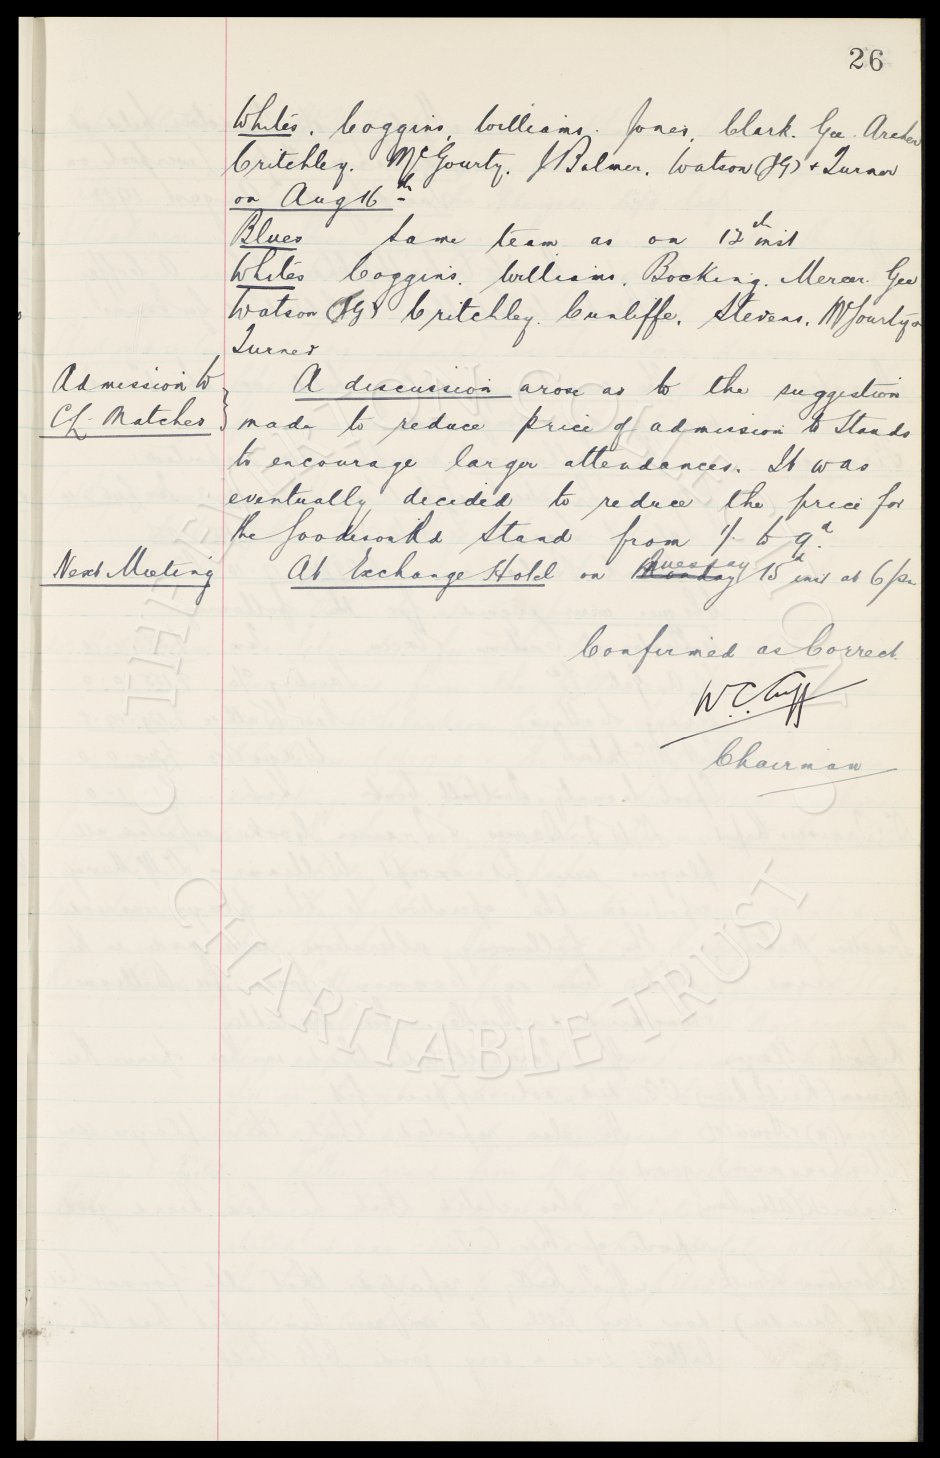 26
Whites. Coggins, Williams. Jones, Clark. Gee. Archer
Critchley. McGourty. J Balmer. Watson (JG) + Turner
on Aug 16th
Blues Same team as on 12th inst
Whites Coggins. Williams. Bocking. Mercer. Gee
Watson (JG) Critchley. Cunliffe. Stevens. McGourty &
Turner
Admission to
CL. Matches
A discussion arose as to the suggestion
made to reduce price of admission to Stands
to encourage larger attendances. It was
eventually decided to reduce the price for
the Goodison Rd Stand from 1/- to 9d.
Next Meeting
At Exchange Hotel on Monday Tuesday 15th inst at 6 pm
Confirmed as Correct.
W.C. Cuff
Chairman
THE EVERTON COLLECTION
CHARITABLE TRUST